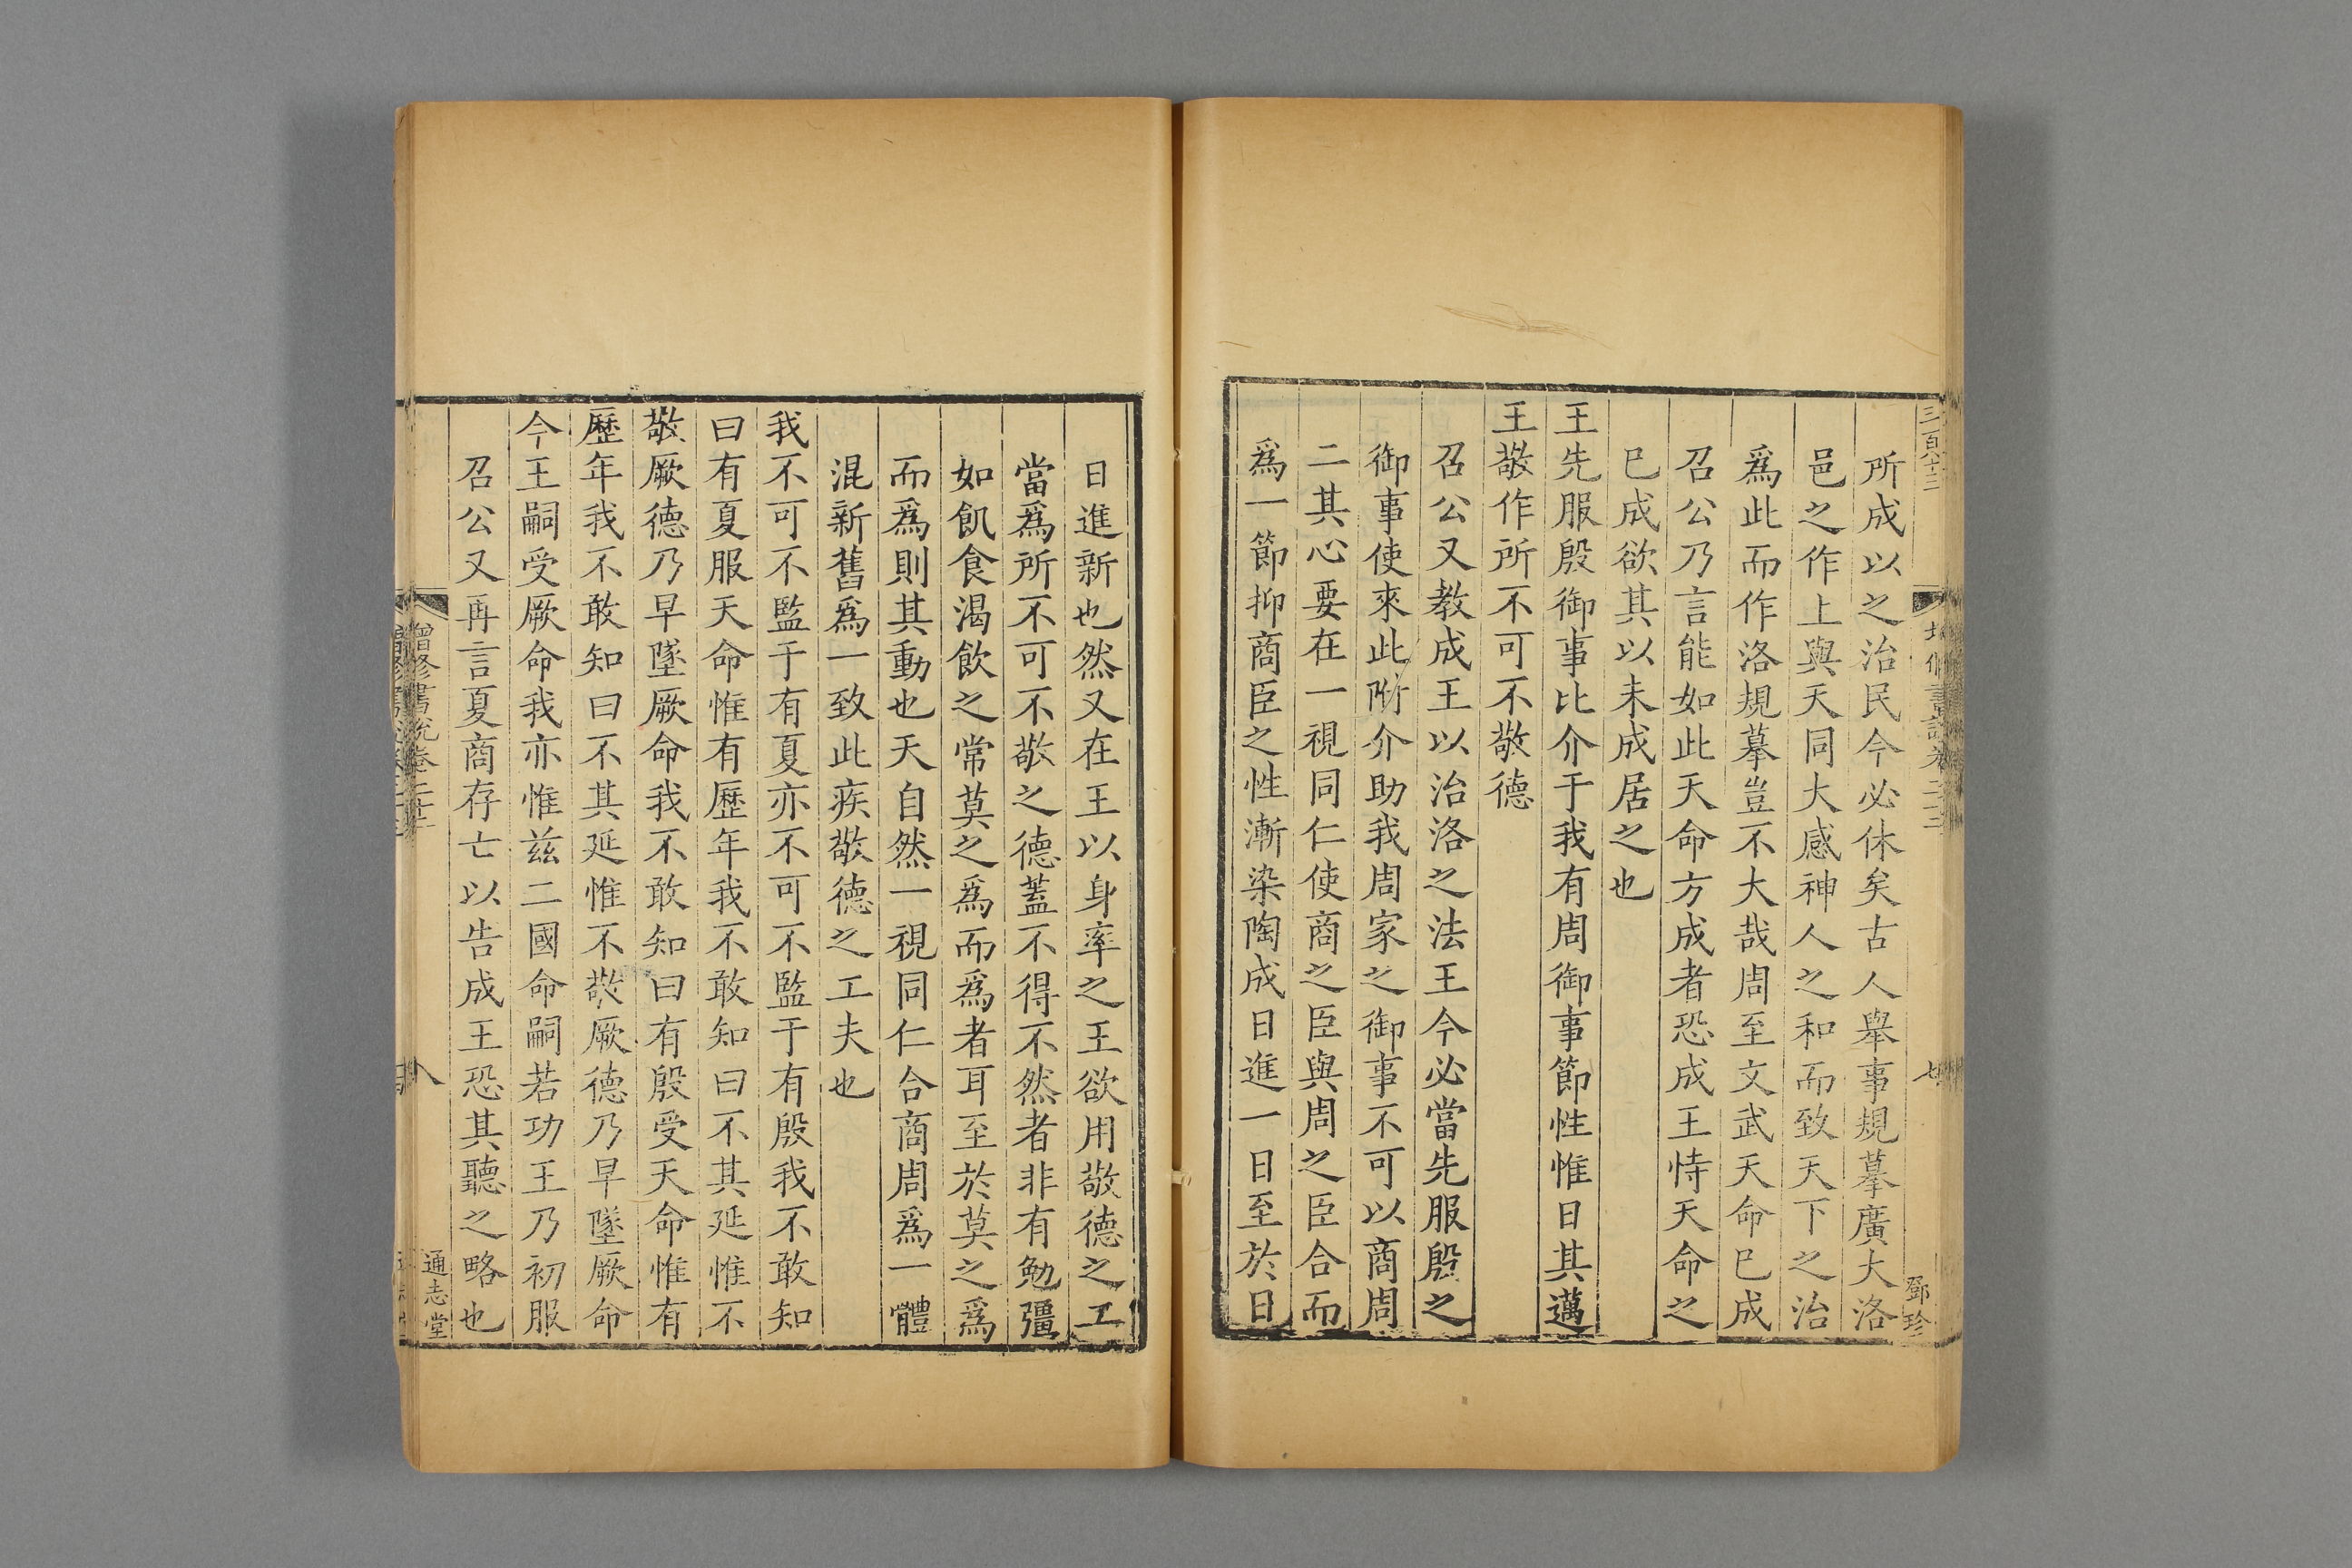 三百八十三
所成以之治民今必休矣古人舉事規摹廣大洛
邑之作上與天同大感神人之和而致天下之治
爲此而作洛規摹豈不大哉周至文武天命已成
召公乃言能如此天命方成者恐成王恃天命之
已成欲其以未成居之也
王先服殷御事比介于我有周御事節性惟日其邁
王敬作所不可不敬德
召公又教成王以治洛之法王今必當先服殷之
御事使來此附介助我周家之御事不可以商周
二其心要在一視同仁使商之臣與周之臣合而
爲一節抑商臣之性漸染陶成日進一日至於日
七
鄧珍
日進新也然又在王以身率之王欲用敬德之工
當爲所不可不敬之德蓋不得不然者非有勉彊
如飢食渴飲之常莫之爲而爲者耳至於莫之爲
而爲則其動也天自然一視同仁合商周爲一體
混新舊爲一致此疾敬德之工夫也
我不可不監于有夏亦不可不監于有殷我不敢知
曰有夏服天命惟有歷年我不敢知曰不其延惟不
敬厥德乃早墜厥命我不敢知曰有殷受天命惟有
歷年我不敢知曰不其延惟不敬厥德乃早墜厥命
今王嗣受厥命我亦惟兹二國命嗣若功王乃初服
召公又再言夏商存亡以告成王恐其聽之略也
增修書說卷二十二
八
通志堂